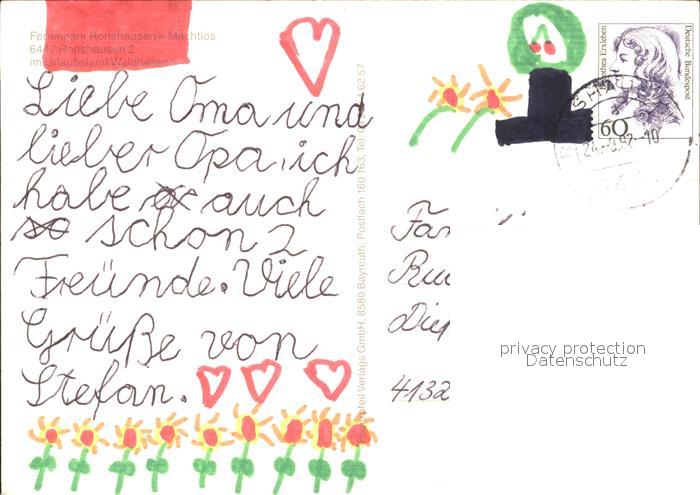 Ferienpark Ronshausen - Machtlos
6447 Ronshausen 2
im Urlaubsland Waldhessen
Liebe Oma und
lieber Opa, ich
habe auch
so schon 2
Freünde. Viele
Grüße von
Stefan.
Verlags GmbH, 8580 Bayreuth, Postfach 160 163, Tel.
62 57
Deutsche Bundespost
60
4132
privacy protection
Datenschutz